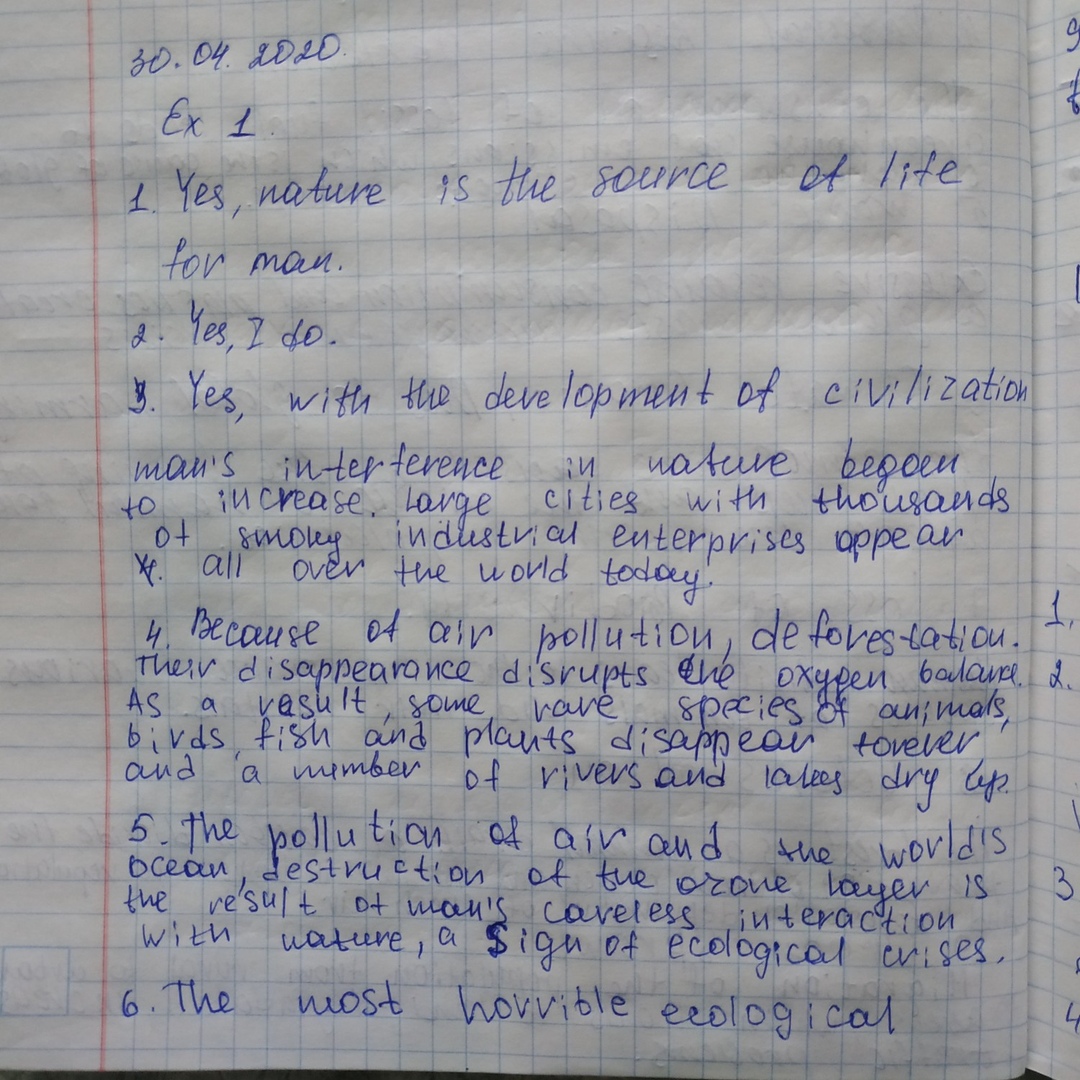 30.04.2020.
Ex 1.
1. Yes, nature is the source of life
for man.
2. Yes, I do.
3. Yes, with the development of civilization
man's interference in nature began
to increase. Large cities with thousands
of smoky industrial enterprises appear
all over the world today.
4. Because of air pollution, deforestation.
Their disappearance disrupts the oxygen balance.
As a result, some rare species of animals,
birds, fish and plants disappear forever,
and a number of rivers and lakes dry up.
5. The pollution of air and the world's
ocean, destruction of the ozone layer is
the result of man's careless interaction
with nature, a sign of ecological crises.
6. The most horrible ecological
9
1.
2.
3
4